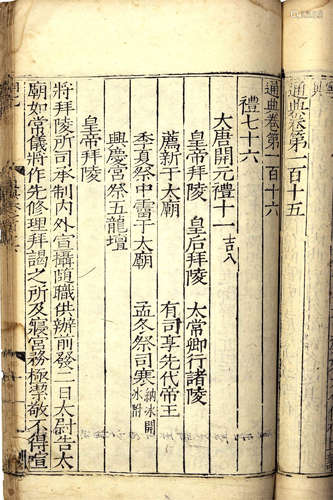 通典卷第一百十五
通典卷第一百十六
禮七十六
大唐開元禮十一 吉八
皇帝拜陵 皇后拜陵 太常卿行諸陵
薦新于太廟 有司享先代帝王
季夏祭中霤于太廟 孟冬祭司寒 納冰開冰附
興慶宮祭五龍壇
皇帝拜陵
將拜陵所司承制內外宣攝隨職供辦前發二日太尉告太
廟如常儀將作先修理拜謁之所及寢宮務極潔敬不得喧